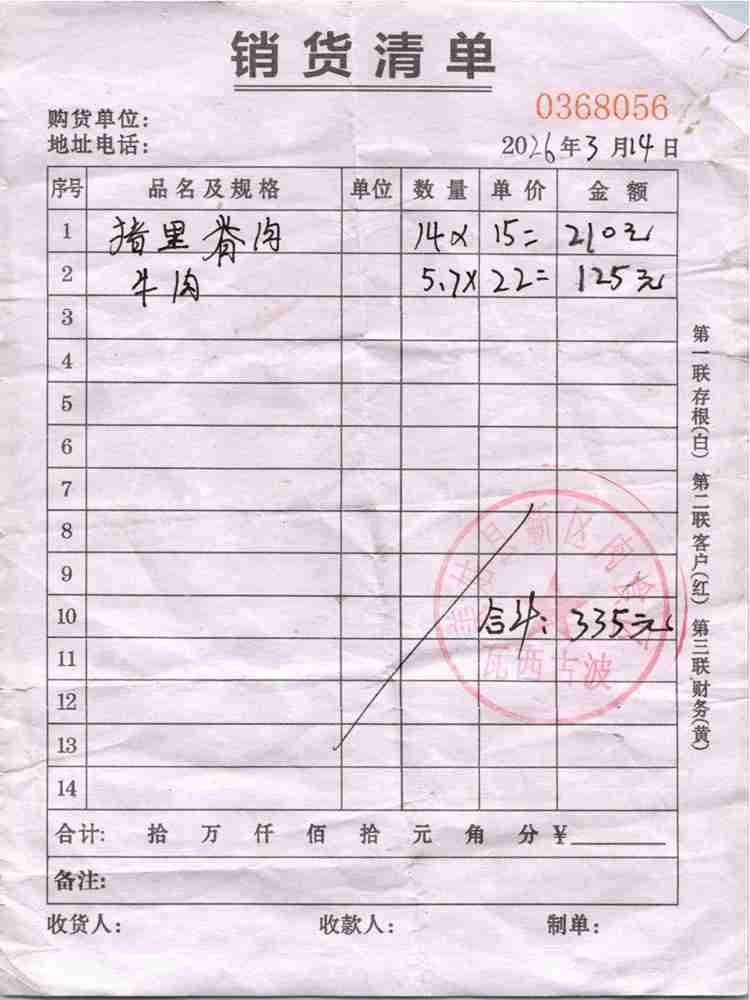 销货清单
0368056
购货单位：
地址电话：
2026年3月14日
序号 品名及规格 单位 数量 单价 金额
1 猪里脊肉 14× 15= 210元
2 牛肉 5.7× 22= 125元
3
4
5
6
7
8
9
10 合计: 335元
11
12
13
14
瓦西古波
合计: 拾 万 仟 佰 拾 元 角 分 ¥
备注:
收货人： 收款人： 制单：
第一联存根(白) 第二联客户(红) 第三联财务(黄)